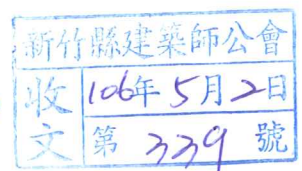 新竹縣建築師公會
收文
106年5月2日
第 339 號